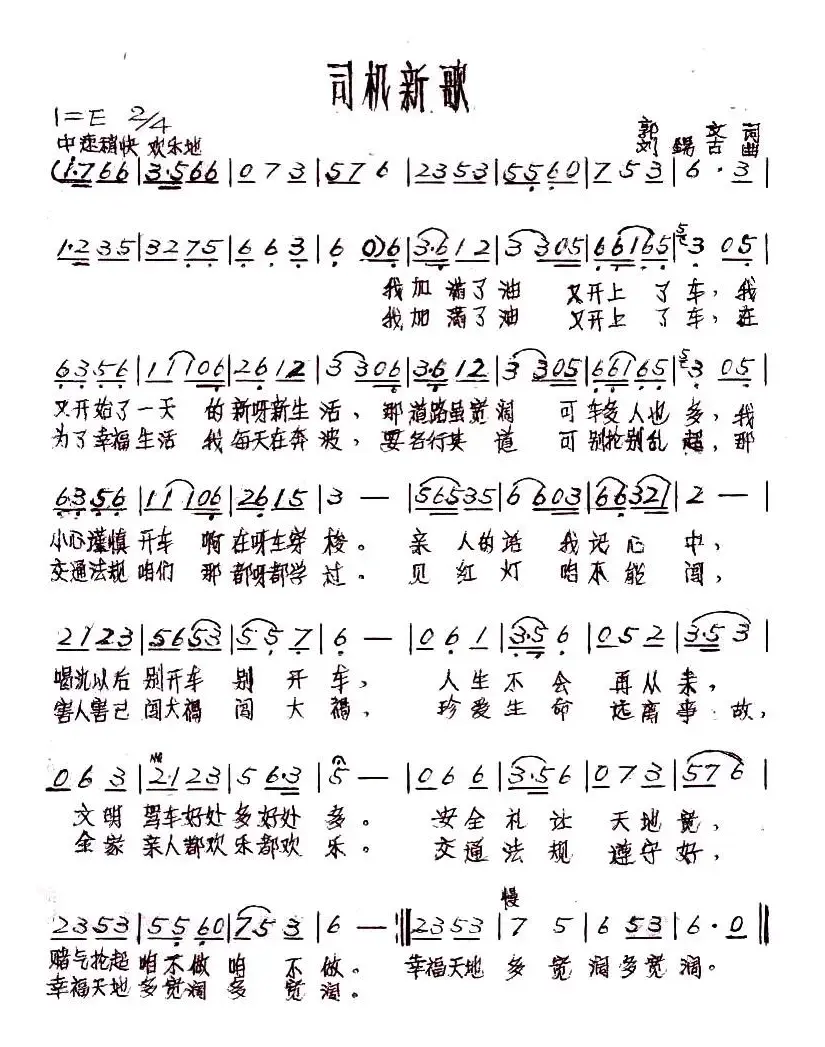 司机新歌
1=E 2/4
中速稍快 欢乐地
郭 文 词
刘 锡 古 曲
(1·766|3·566|073|576|2353|5560|753|6·3|
1·235|3275|663|60)6|3·612|3305|66165|3 05|
我加满了油 又开上了车,我
我加满了油 又开上了车,在
6356|11106|2612|3306|3·612|3305|66165|3 05|
又开始了一天 的新呀新生活,那道路虽宽阔 可车多人也多,我
为了幸福生活 我每天在奔波,要各行其道 可别抢别乱超,那
6356|11106|2615|3—|56535|6603|66321|2—|
小心谨慎开车 啊在呀在穿梭。亲人的话 我记心中,
交通法规咱们 那都呀都学过。见红灯 咱不能闯,
2123|5653|557|6—|061|3·56|052|3·53|
喝沇以后别开车 别开车,人生不会再从来,
害人害己闯大祸 闯大祸,珍爱生命远离事故,
063|2·123|56·3|5—|066|3·56|073|576|
文明驾车好处多好处多。安全礼让天地宽,
全家亲人都欢乐都欢乐。交通法规遵守好,
慢
2353|5560|753|6—:||2353|7 5|6 53|6·0||
赌气抢超咱不做咱不做。幸福天地多宽阔多宽阔。
幸福天地多宽阔多宽阔。